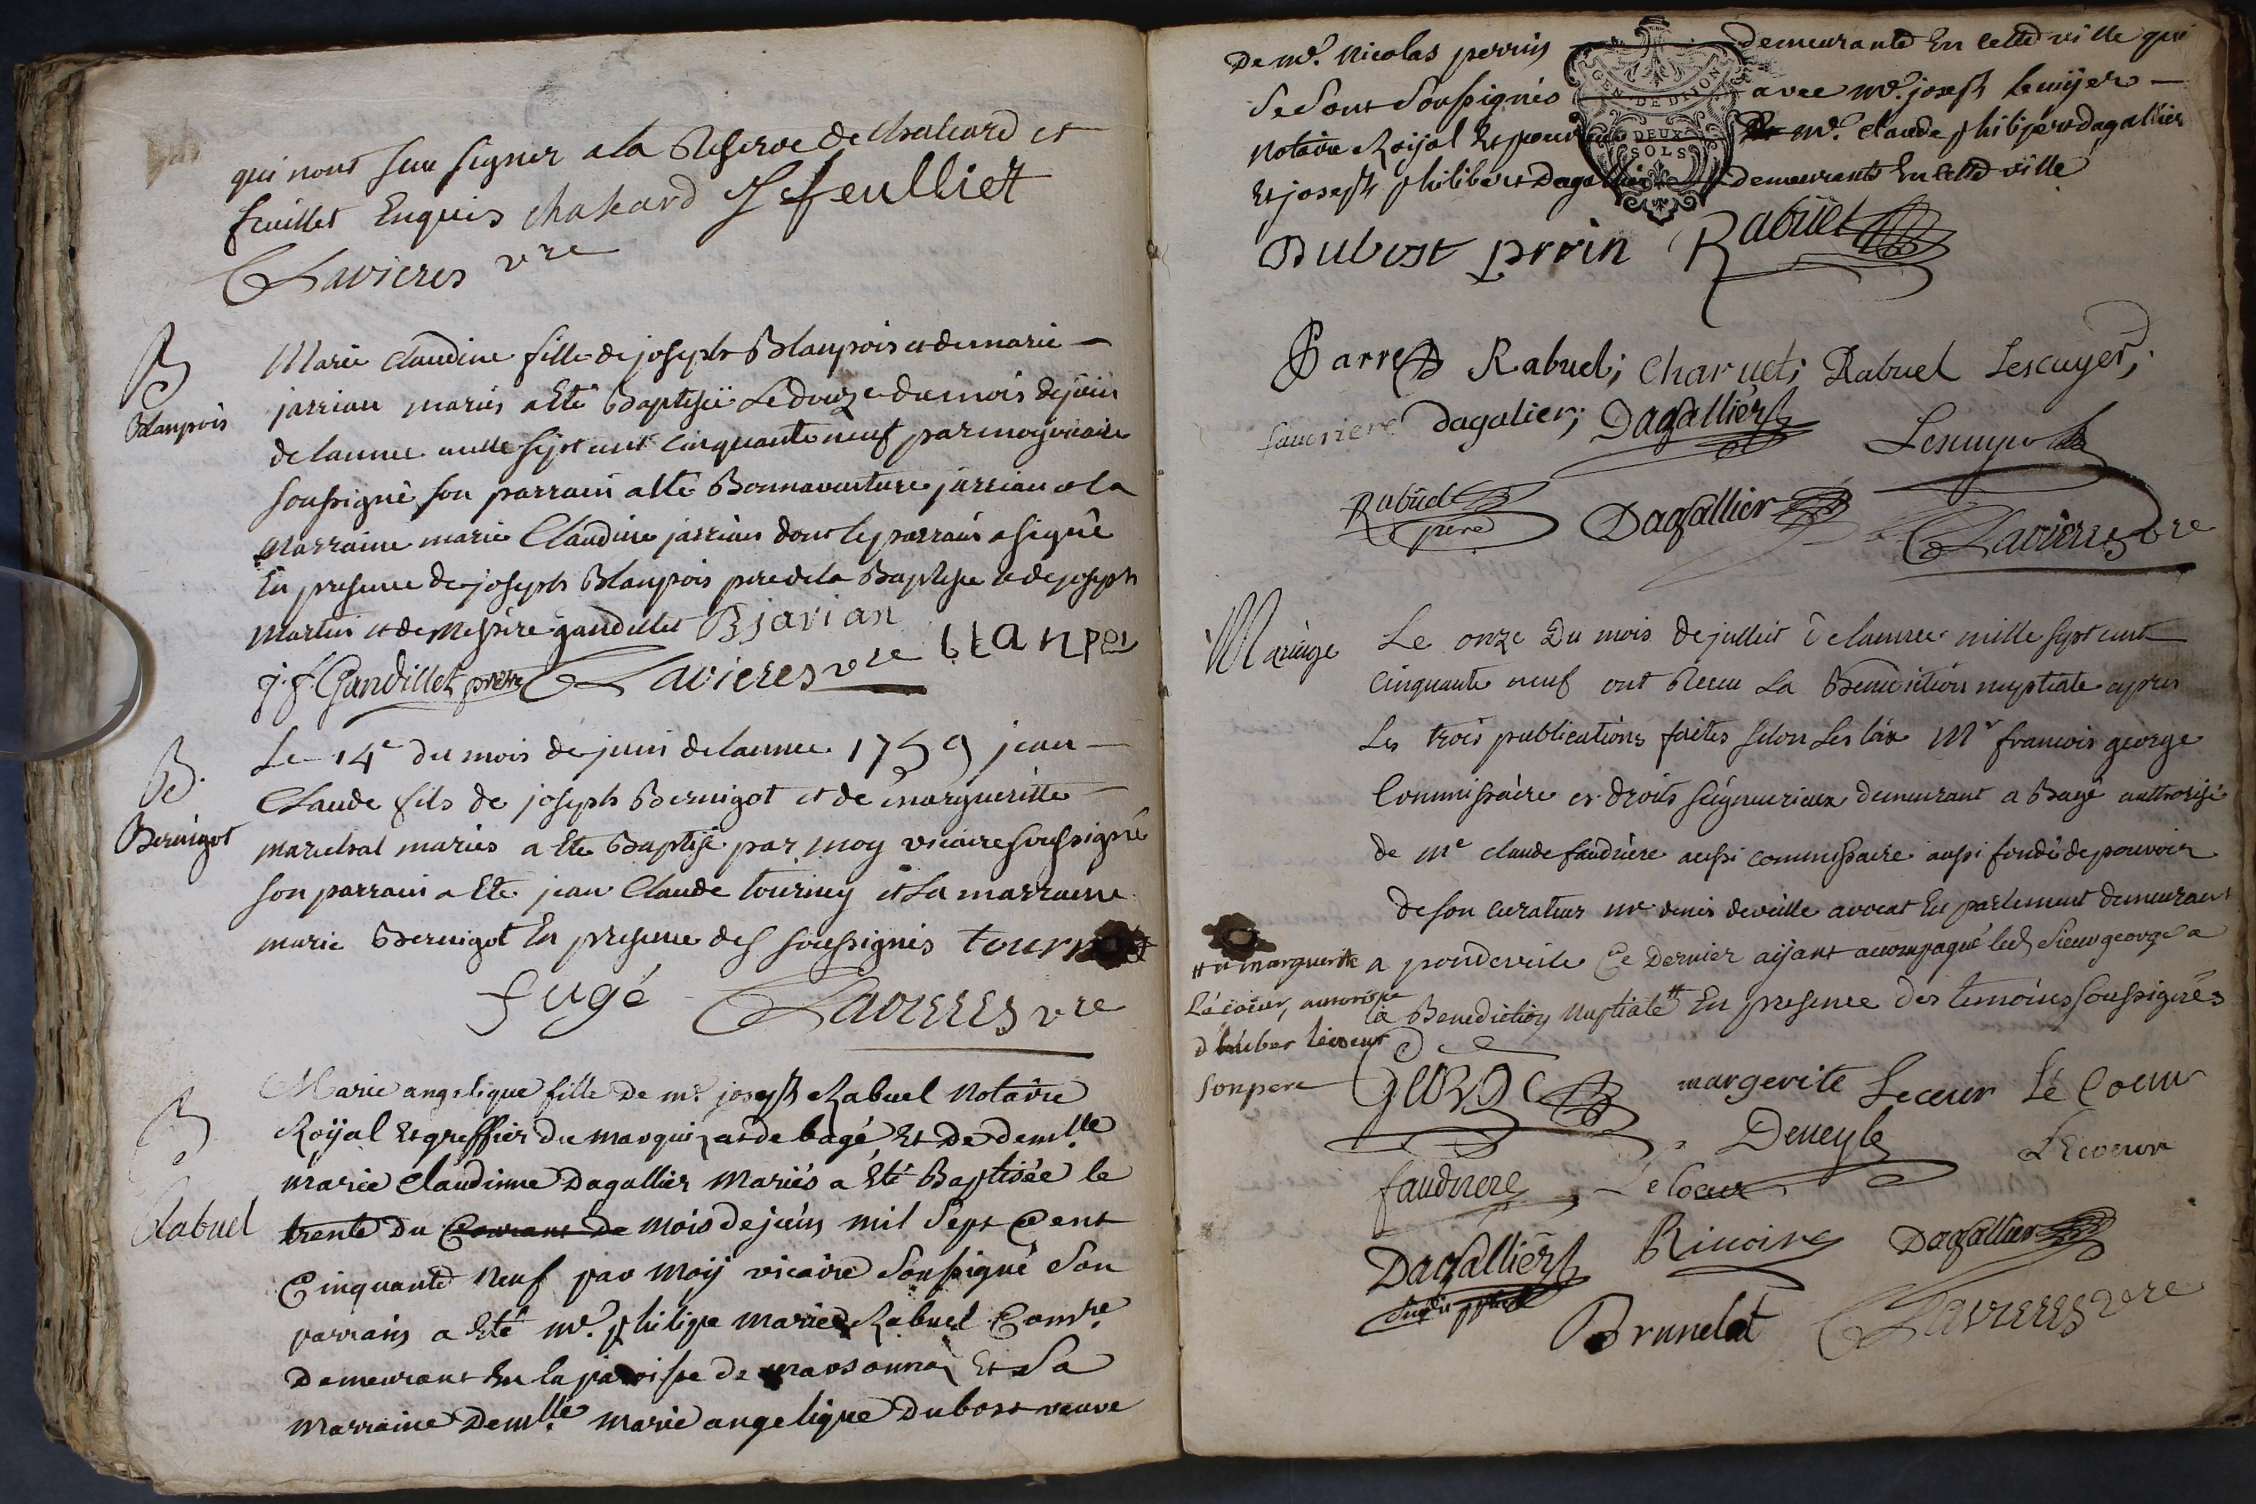 qui nont sceu signer a la Reserve de Chahard et
feuillet Enquis chahard J feulliet
Lavieres vre
B
Blanpois
Marie Claudine fille de joseph Blanpois et de marie
jarrian mariés a Eté Baptiseé Le douze du mois de juin
de lannee mille sept cent cinquante neuf par moy vicaire
soussigné son parrain a été Bonnaventure jarrian et la
marraine marie Claudine jarrian dont le parrain a signé
En presence de joseph Blanpois pere de la Baptisée et de joseph
Martin et de Messire gandillet B jarian
j. f. Gandillet prêtre Lavieres vre blanpoi
B.
Bernigot
Le 14e du mois de juin de lannee 1759 jean
Claude fils de joseph Bernigot et de margueritte
marechal mariés a Eté Baptisé par moy vicaire soussigné
son parrain a Eté jean Claude tourney et La marraine
marie Bernigot En presence des soussignés
fugé Lavieres vre
B
Rabuel
Marie angelique fille De mr. joseph Rabuel Notaire
Royal Et greffier du marquizat de bagé Et De demlle
marie claudinne Dagallier Mariés a Eté Baptisée le
trente du Courant de mois de juin mil Sept Cent
Cinquante Neuf par Moy vicaire Soussigné Son
parrain a Eté mr. philipe marie Rabuel Comre
Demeurant En la paroisse de marsonna Et Sa
Marraine Demlle marie angelique Dubost veuve
De mr. Nicolas perrin demeurante En cette ville qui
Se Sont Soussignés avec mr. joseph lecuyer
GEN DE DIJON
DEUX
SOLS
Notaire Royal Et mr. claude philipert dagallier
Et joseph philibert Dagallier demeurants En cette ville
Dubost perrin Rabuel
Barre Rabuel; Charuet; Rabuel Lescuyer;
faudriere Dagalier; Dagallier Lescuyer
Rabuel
pere Dagallier Lavieres vre
Mariage
Le onze Du mois de juillet de lannee mille sept cent
cinquante neuf ont Receu La Benediction nuptiale apres
Les trois publications faites selon Les loix Mr francois george
Commissaire es droits seigneuriaux demeurant a Bagé authorisé
de me claude faudriere aussi commissaire aussi fondé de pouvoir
de son curateur me denis deveille avocat En parlement demeurant
a pondeveile Ce Dernier aijant accompagné led Sieur george a
la Benediction Nuptiale # En presence des temoins soussignés
# et marguerite
Lécoeur, autorisée
d' Lécoeur
son pere
George margerite Lecoeur Lé Coeur
Deneyle Lecoeur
faudriere Le Coeur
Dagallier Dagallier
Brunelat Lavieres vre